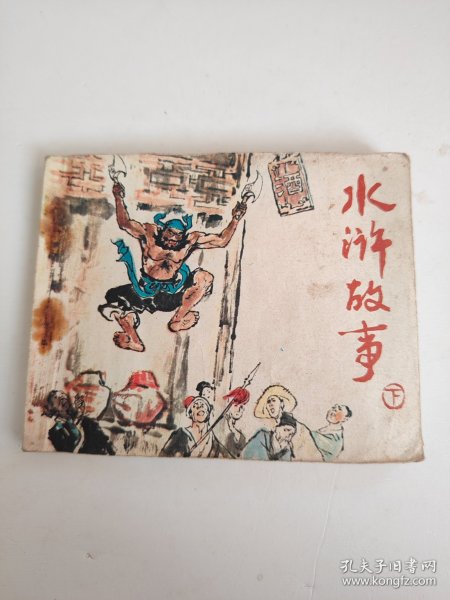 水浒故事
下
酒
孔夫子旧书网
www.kongfz.com